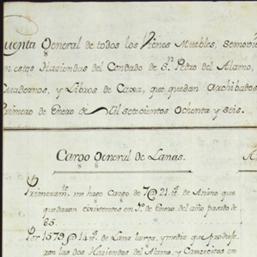 Cuenta General de todos los Vienes Muebles, Semovie
en estas Haciendas del Condado de Sn. Pedro del Alamo,
Quadernos, y Libros de Caxa, que quedan Archibados
Primero de Enero de Mil Setecientos Ochenta y seis.
Cargo General de Lanas.
Primeramte. me hago Cargo de 7@ 21 lb. de Añino que
quedaron existentes en 1º. de Enero del año pasado de
85.
Por 1579@ 14 lb. de Lana larga, y media que
las dos Haciendas del Alamo, y